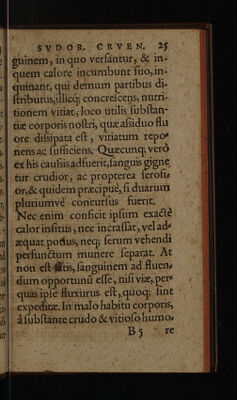 SVDOR. CRVEN. 25
guinem, in quo versantur, & in-
quem calore incumbunt suo, in-
quinant, qui demum partibus di-
stributus, illicq; concrescens, nutri-
tionem vitiat, loco utilis substan-
tiæ corporis nostri, quæ assiduo flu
ore dissipata est, vitiatum repo-
nens ac sufficiens. Quæcunq; verò
ex his caussis adfuerit, sanguis gigne
tur crudior, ac propterea serosi-
or, & quidem præcipuè, si duarum
pluriumvè concursus fuerit.
Nec enim conficit ipsum exactè
calor insitus, nec incrassat, vel ad-
æquat potius, neq; serum vehendi
perfunctum munere separat. At
non est satis, sanguinem ad fluen-
dum opportunũ esse, nisi viæ, per
quas ipse fluxurus est, quoq; sint
expeditæ. In malo habitu corporis,
à substante crudo & vitioso humo-
B 5 re